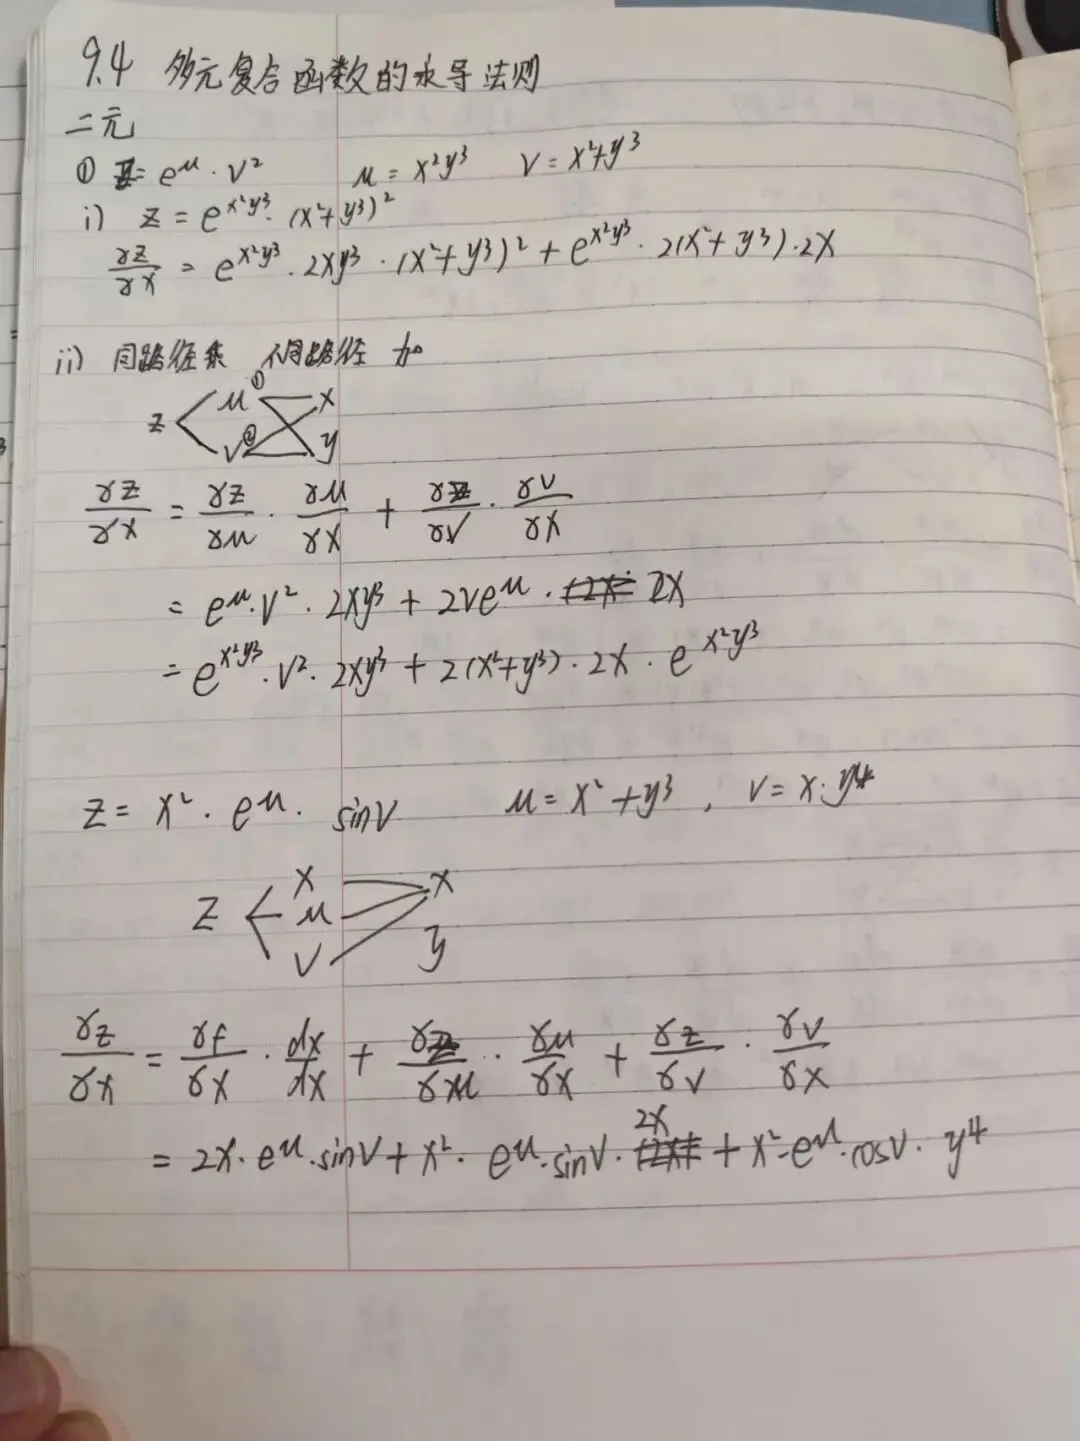 9.4 多元复合函数的求导法则
二元
① z = e^u · v²  u = x²y³  v = x²+y³
i) z = e^{x²y³} · (x²+y³)²
∂z/∂x = e^{x²y³} · 2xy³ · (x²+y³)² + e^{x²y³} · 2(x²+y³) · 2x
ii) 同路径乘 不同路径 加
z u① x
v② y
∂z/∂x = ∂z/∂u · ∂u/∂x + ∂z/∂v · ∂v/∂x
= e^u · v² · 2xy³ + 2ve^u · 2x
= e^{x²y³} · v² · 2xy³ + 2(x²+y³) · 2x · e^{x²y³}
z = x² · e^u · sinv  u = x²+y³ , v = x·y⁴
x x
z u
v y
∂z/∂x = ∂f/∂x · dx/dx + ∂z/∂u · ∂u/∂x + ∂z/∂v · ∂v/∂x
= 2x · e^u · sinv + x² · e^u · sinv · 2x + x² · e^u · cosv · y⁴